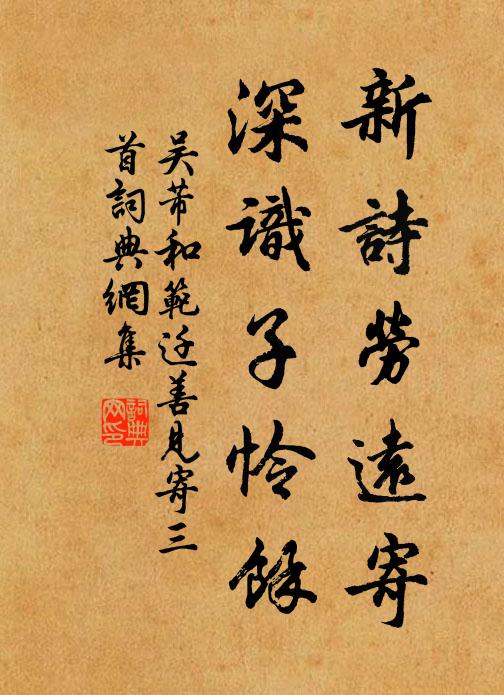 新詩勞遠寄
深識子怜餘
吴芾和範迁善見寄三
首詞典網集
詞典
网印